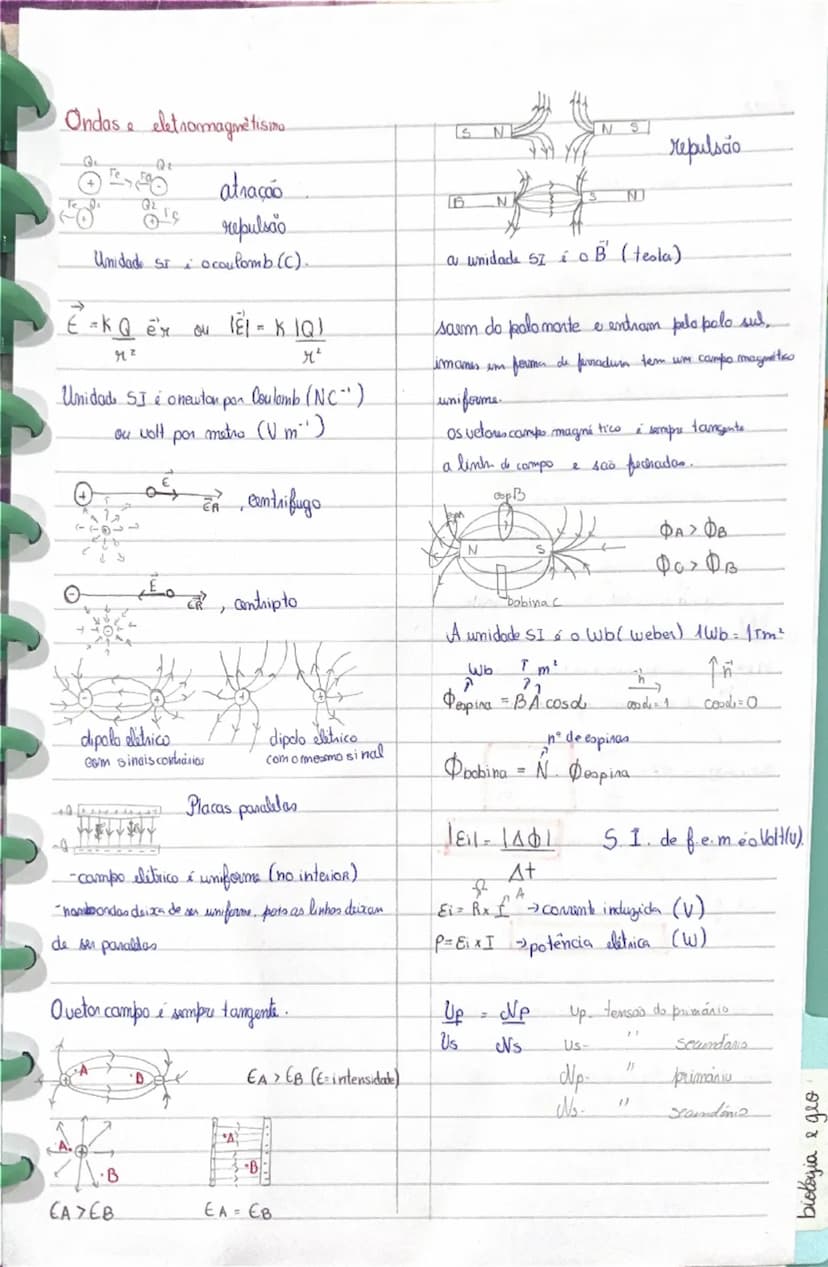 Ondas e eletromagnetismo
Q1 Fe Fe Q2
+ - atração
Fe Q1 Q2 Fe
repulsão
Unidade SI é o coulomb (C).
E = K Q/r² er ou |E| = K |Q|/r²
Unidade SI é o newton por Coulomb (NC⁻¹)
ou volt por metro (V m⁻¹)
+ E , centrifugo
- E , centripto
- + + +
dipolo elétrico
com sinais contrários
dipolo elétrico
com o mesmo sinal
+Q Placas paralelas
-Q
- campo elétrico é uniforme (no interior)
- deixa de ser uniforme, pois as linhas deixam
de ser paralelas
O vetor campo é sempre tangente.
A B EA > EB (E = intensidade)
A. + . B
•A •B
EA > EB EA = EB
S N N S
repulsão
B N S N
a unidade SI é o B (tesla)
saem do polo norte e entram pelo polo sul.
imanes em forma de ferradura tem um campo magnético
uniforme.
os vetores campo magnético é sempre tangente
a linha de campo e são fechadas.
espB
N S ΦA > ΦB
ΦC > ΦB
bobina C
A unidade SI é o Wb (weber) 1Wb = 1Tm²
Wb T m² n n
Φespira = B A cosα cosα = 1 cosα = 0
nº de espiras
Φbobina = N . Φespira
|Ei| = |ΔΦ|/Δt S.I. de f.e.m é o Volt (v).
Ω A
Ei = R x I → corrente induzida (V)
P = Ei x I → potência elétrica (W)
Up/Us = Np/Ns
Up- tensão do primário
Us- '' secundário
Np- '' primário
Ns- '' secundário
biologia e geo